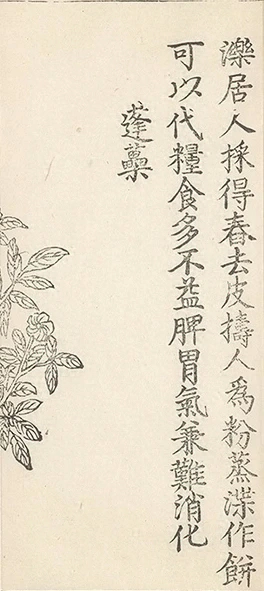 濼居人採得舂去皮擣人為粉蒸渫作餅
可以代糧食多不益脾胃氣兼難消化
蓬蘽